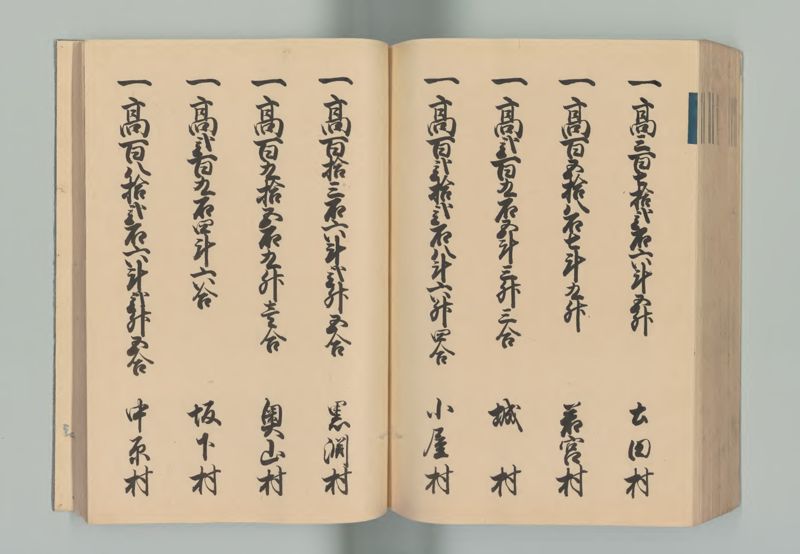 一 高三百七拾弐石六斗五升 吉田村
一 高百五拾八石七斗九升 若宮村
一 高弐百九石五斗三升三合 城村
一 高百弐拾弐石八斗六升四合 小屋村
一 高百拾三石六斗弐升五合 黒淵村
一 高百九拾五石九升壱合 奥山村
一 高弐百九石四斗六合 坂下村
一 高百八拾弐石六斗弐升五合 中原村